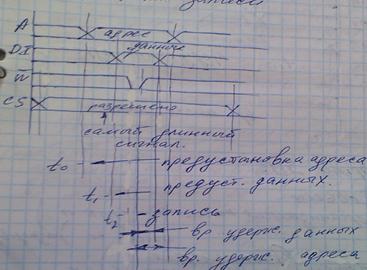 записи
A адрес
DI данные
W
CS разрешено
самый длинный
сигнал.
t₀ предустановка адреса
t₁ предуст. данных.
t₂ запись
вр. удерж. данных
вр. удерж. адреса